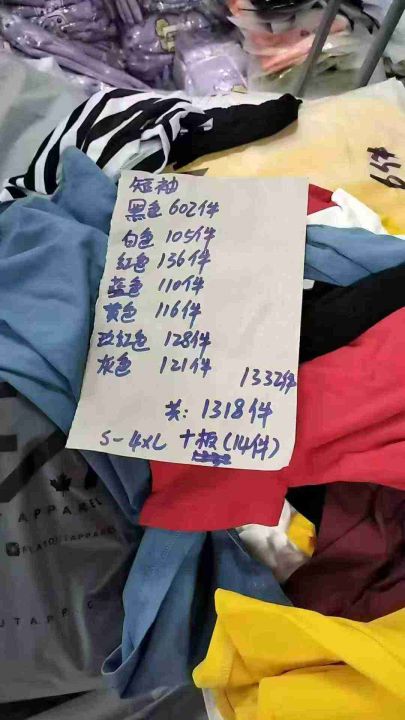 短袖
黑色 602件
白色 105件
红色 136件
蓝色 110件
黄色 116件
玫红色 128件
灰色 121件
1332件
共: 1318件
S-4XL 十板(14件)
6件
APPAREL